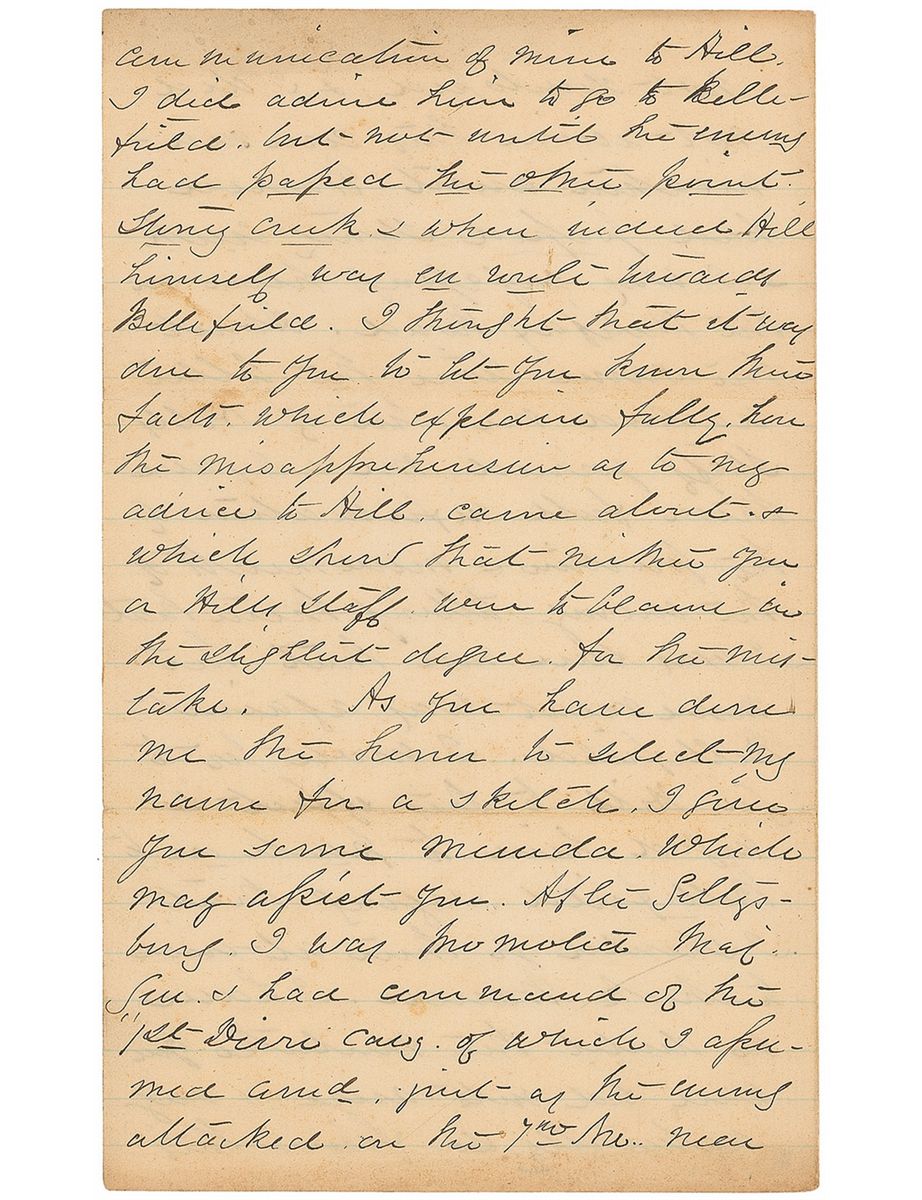 communication of mine to Hill.
I did advise him to go to Belle-
field. but not until the enemy
had passed the other point.
Stony Creek. & when indeed Hill
himself was en route towards
Bellefield. I thought that it was
due to you. to let you know these
facts. which explain fully. how
the misapprehension as to my
advice to Hill. came about. &
which show that neither you
or Hills staff. were to blame in
the slightest degree. for the mis-
take. As you have done
me the honor to select my
name for a sketch. I give
you some memda. which
may assist you. After Gettys-
burg. I was promoted Maj.
Gen. & had command of the
1st Divn Cavy. of which I assu-
med comd. just as the enemy
attacked on the 7 Mo.. near